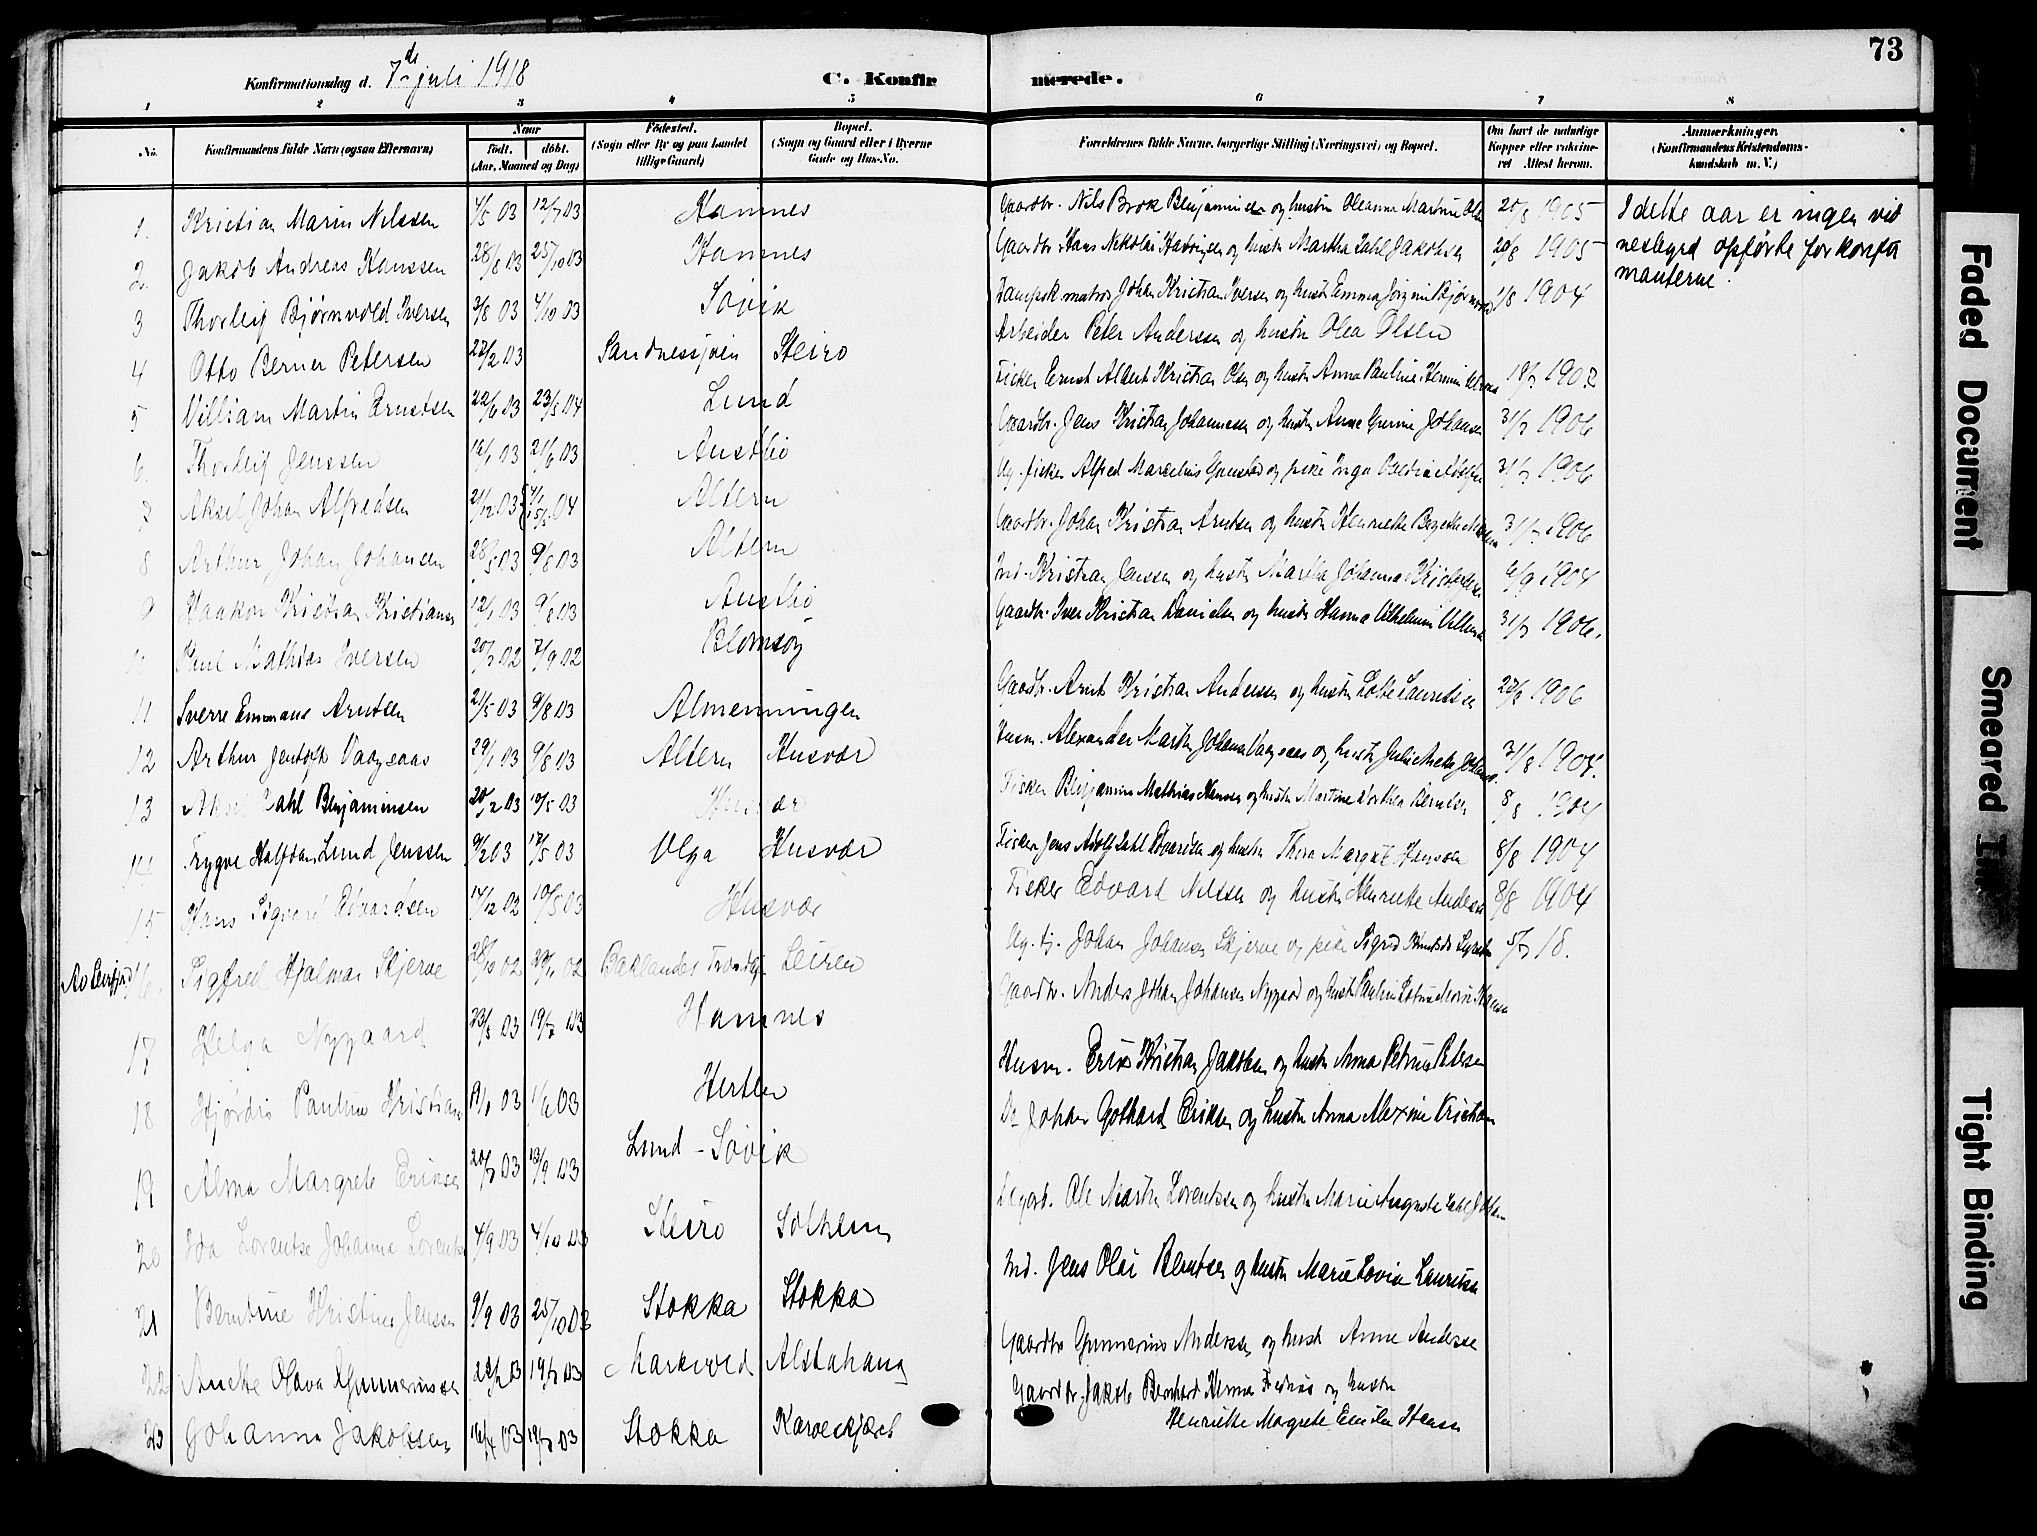 73
Konfirmationsdag d. 7de juli 1918
C. Konfirmerede.
1 2 3 4 5 6 7 8
No. Konfirmandens fulde Navn (ogsaa Efternavn) Naar født. døbt. (Aar, Maaned og Dag) Fødested. (Sogn eller By og paa Landet tillige Gaard) Bopæl. (Sogn og Gaard eller i Byerne Gade og Hus-No. Forældrenes fulde Navne, borgerlige Stilling (Næringsvei) og Bopæl. Om havt de naturlige Kopper eller vakcineret Attest herom. Anmærkninger. (Konfirmandens Kristendomskundskab m. V.)
1. Kristian Marin Nilssen 4/5 03 12/7 03 Hamnes Gaardbr. Nils Brok Benjaminsen og hustru Oleanna Martine 20/8 1905
I dette aar er ingen vid
nesbyrd opførte for konfir
manterne.
2. Jakob Andreas Hanssen 28/8 03 25/10 03 Hamnes Gaardbr Hans Nikolai og hustr Martha Zahl Jakobsen 20/8 1905
3 Thorleif Bjørnvold Iversen 3/8 03 4/10 03 Søvik Dampsk matros Johan Kristian Iversen og hustr Emma Bjørnvold 1/8 1904
4 Otto Berner Petersen 22/2 03 Sandnessjøen Steiro Arbeider Peter Anderssen og hustru Olea Olsen
5 Villiam Martin Ernstsen 22/6 03 23/5 04 Lund Fisker Ernst Albert Kristian Olsen og hustr Anna Pauline 18/7 1902
6. Thorleif Jenssen 16/1 03 21/6 03 Austbø Gaardbr. Jens Kristian Johannessen og hustr Anne Johansen 31/7 1906
7 Aksel Johan Alfredsen 21/12 03 04 Altern Ug. fisker Alfred Marcelius og pike Inga 31/7 1906
8 Arthur Johan Johansen 28/5 03 9/8 03 Altern Gaardbr. Johan Kristian Arntsen og hustr Henriette 31/7 1906
9 Haakon Kristian Kristiansen 12/1 03 9/8 03 Austbø Ind. Kristian Jenssen og hustr Martha Johanna 6/9 1904
10 Paul Mathias Iversen 20/7 02 7/9 02 Blomsøy Gaardbr. Iver Kristian Danielsen og hustr Hanna Vilhelmine 31/7 1906.
11 Sverre Emmans Arntsen 21/5 03 9/8 03 Almenningen Gaardbr. Arnt Kristian Andersen og hustr Lotte Lauritsen 22/8 1906
12 Arthur Jentoft Vaagsaas 29/1 03 9/8 03 Altern Husvær Husm. Alexander Martin Johansen Vaagsaas og hustr Julie 31/8 1904.
13 Aksel Zahl Benjaminsen 20/2 03 10/5 03 Husvær Fisker Benjamin Mathias Hansen og hustr Martine Dorthea 8/8 1904
14 Trygve Halfdan Lund Jenssen 9/2 03 17/5 03 Olga Husvær Fisker Jens Adolf Zahl Edvardsen og hustr Thora Margret Hansen 8/8 1904
15 Hans Sigvard Edvardsen 14/12 02 10/5 03 Husvær Fisker Edvard Nilssen og hustr Henriette Andersen 8/8 1904
16. Sigfred Hjalmar Skjerve 28/10 02 29/11 02 Baklandet Leiren Ug. tj. Johan Johansen Skjerve og pike Sigrid 5/7 18.
17 Helga Nygaard 23/5 03 19/7 03 Hamnes Gaardbr. Anders Johan Johansen Nygaard og hustr Pauline
18 Hjørdis Pauline Kristiansen 19/1 03 1/6 03 Herten Husm. Erik Kristian Jakobsen og hustr Anna Petrine Petersen
19 Alma Margrete Eriksen 20/7 03 13/9 03 Lund - Søvik Do Johan Gothard Eriksen og hustr Anna Alexine Kristian
20 Ida Lorentse Johanna Lorentsen 4/9 03 4/10 03 Steiro Solheim Ole Martin Lorentsen og hustr Marie Auguste
21 Berntine Kristine Jenssen 9/9 03 25/10 03 Stokka Stokka Ind. Jens Olai Berntsen og hustr Marie Lovise Lauritsen
22 Anette Olava Gunneriussen 22/2 03 19/7 03 Markvold Alstahaug Gaardbr Gunnerius Anderssen og hustr Anne Anderse
23 Johanna Jakobsen 16/4 03 19/7 03 Stokka Gaardbr. Jakob Bernhard og hustr
Henriette Magrete Emilie Hansen
Faded Document
Smeared Ink
Tight Binding